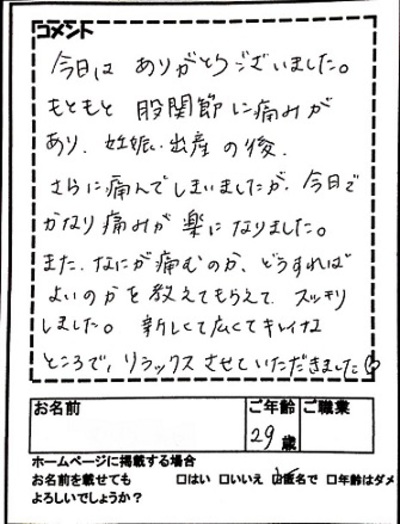 コメント
今日は ありがとうございました。
もともと 股関節に痛みが
あり、妊娠、出産の後、
さらに痛んでしまいましたが、今日で
かなり痛みが楽になりました。
また、なにが痛むのか、どうすれば
よいのかを教えてもらえて スッキリ
しました。 新しくて広くてキレイな
ところで、リラックスさせていただきました
お名前
ご年齢
ご職業
29歳
ホームページに掲載する場合
お名前を載せても □はい □いいえ ☑匿名で □年齢はダメ
よろしいでしょうか？